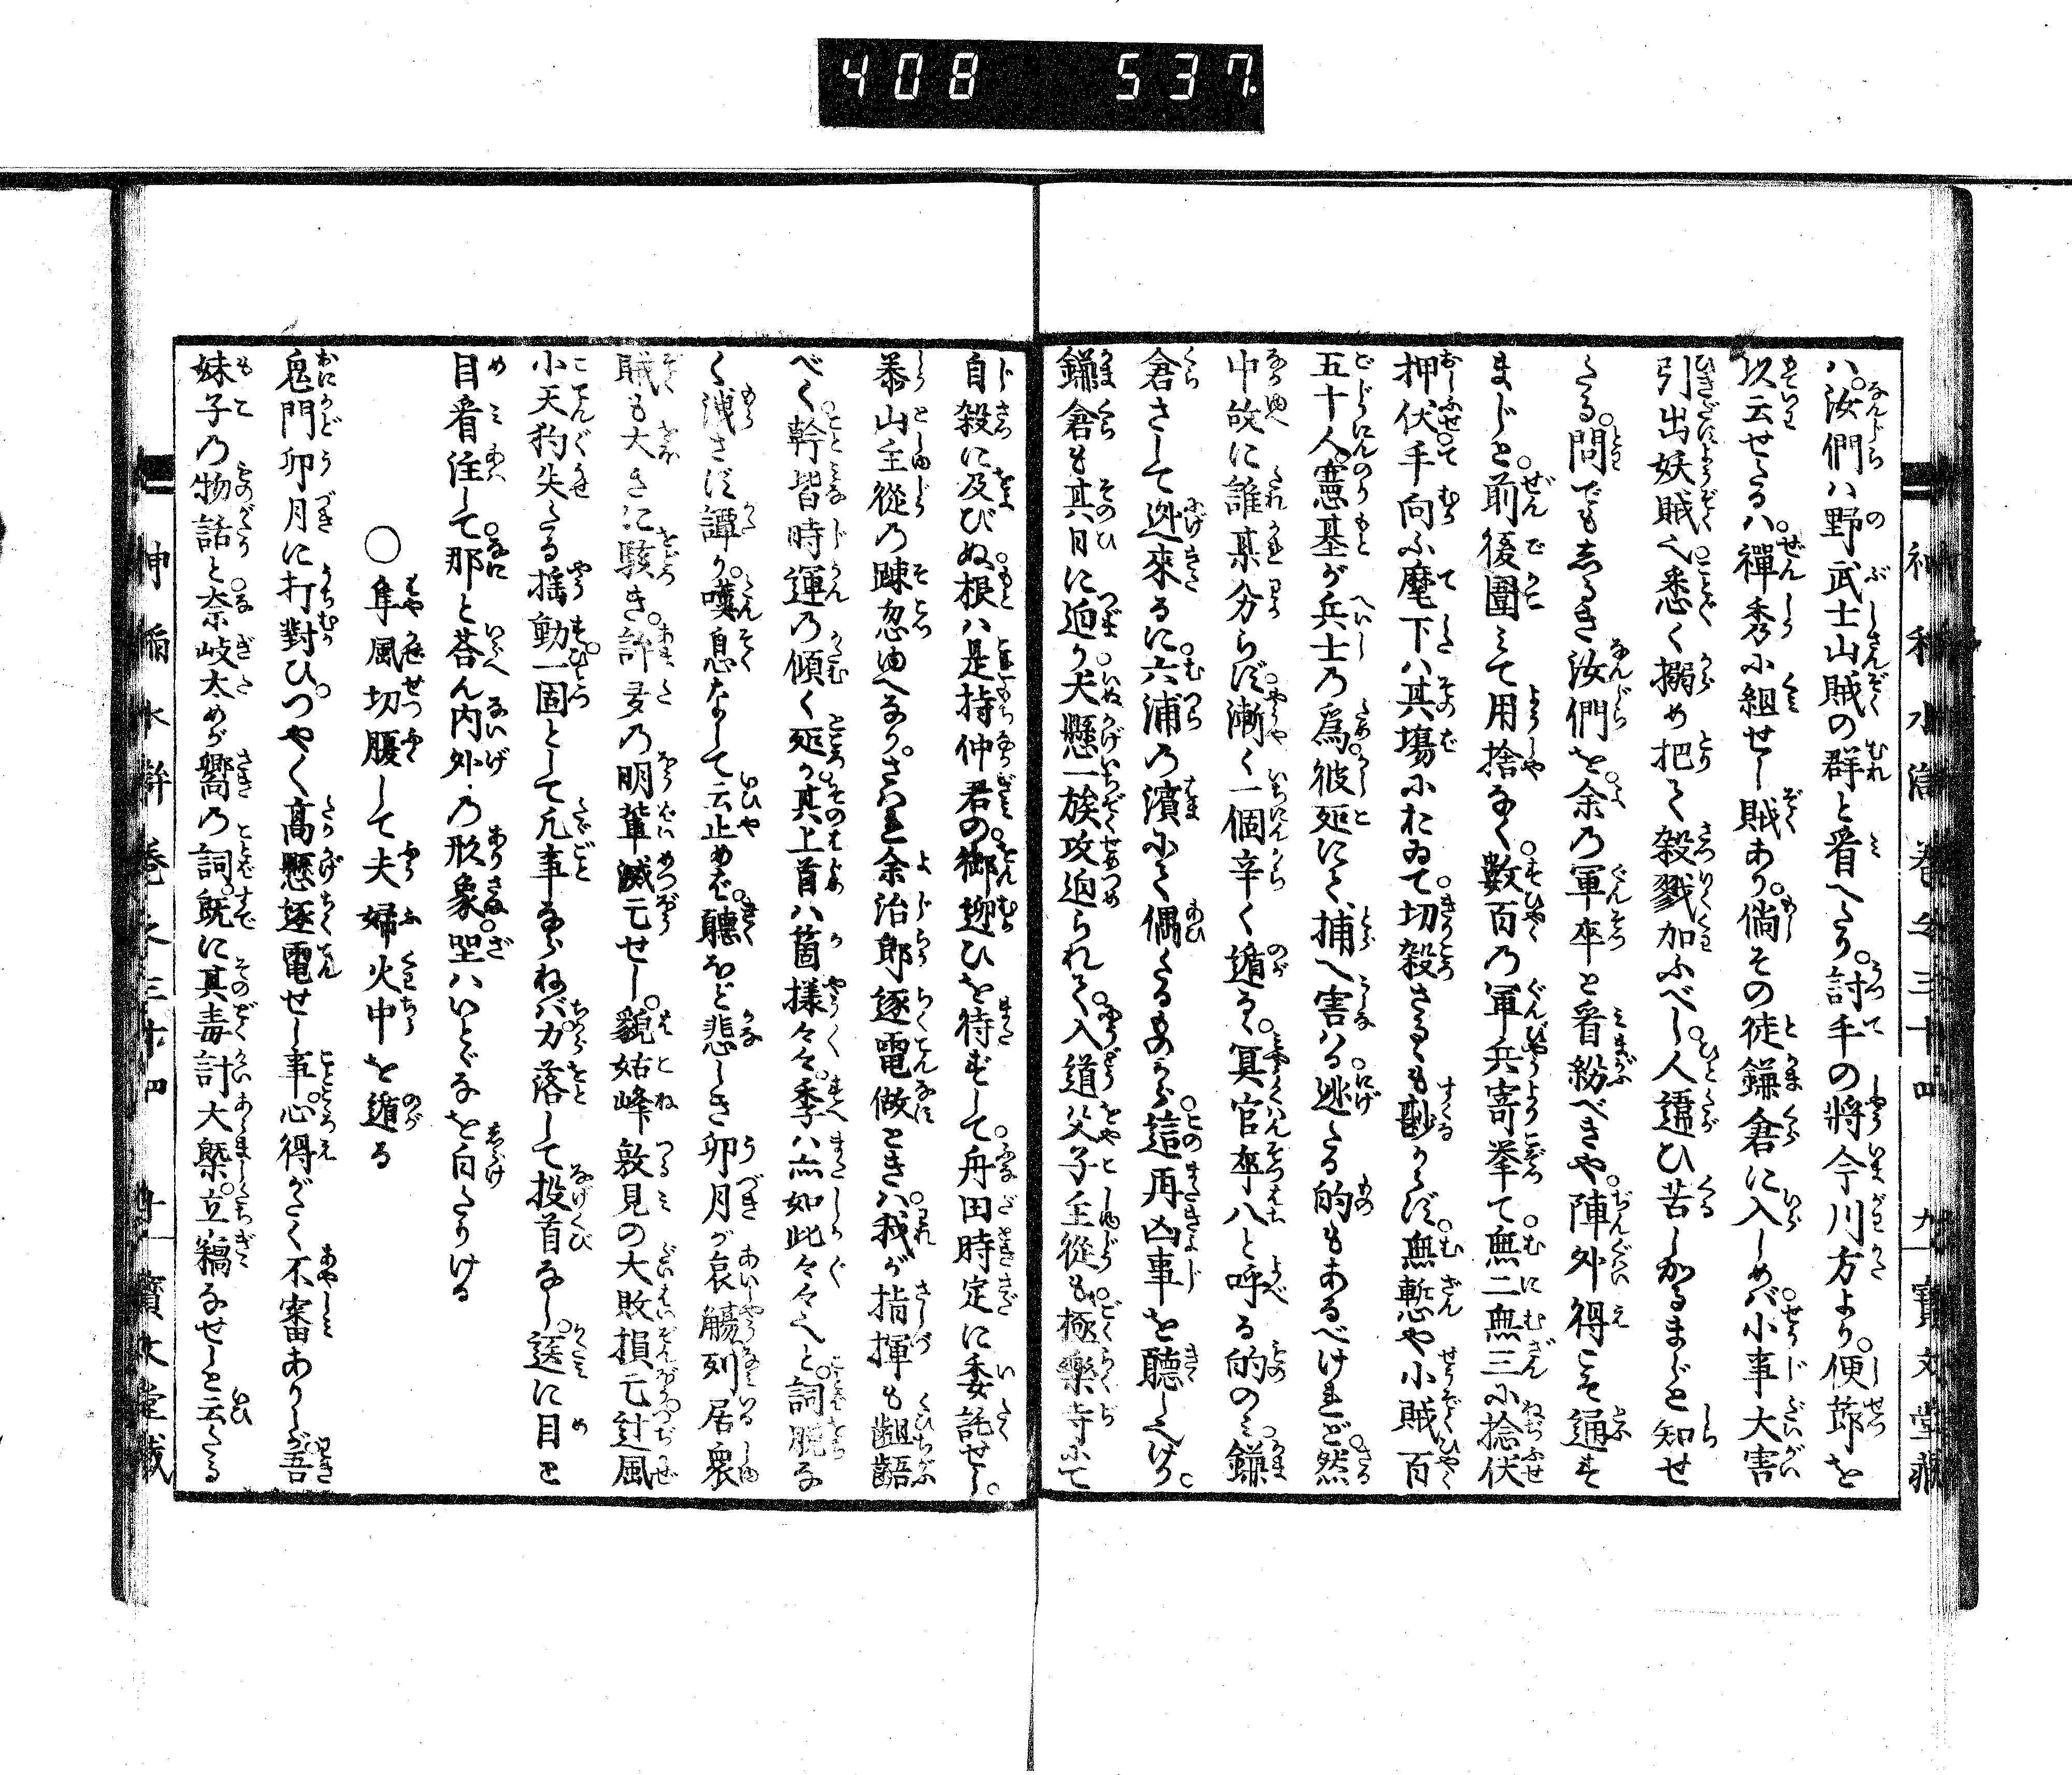 408 537
ハ。汝們ハ野武士山賊の群と看へたり。討手の将今川方より。便節を
以云せたるハ。禅秀に組せし賊あり。倘その徒鎌倉に入しめバ小事大害
引出妖賊也悉く搦め把て殺戮加ふべし。人違ひ苦しかるまじと知せ
たる。問でも志るき汝們を。余の軍卒と看紛べきや。陣外得こそ通す
まじと。前後圍ミて用捨なく。數百の軍兵寄挙て。無二無三に捻伏
押伏。手向ふ麾下ハ其塲におゐて。切殺さるゝも尠からず。無慙や小賊百
五十人。憲基が兵士の為。彼処にて、捕へ害ハる。逃たる的もあるべけれど。然
中故に誰某分らず。漸く一個辛く遁る。冥官卒八と呼る的のミ。鎌
倉さして迯來るに。六浦の濱にて偶たるあり。這再凶事を聽しハげり。
鎌倉も其日に迫り。犬懸一族攻迫られて。入道父子主從も。極樂寺にて
自殺に及びぬ。根ハ是持仲君の。御迎ひを待ずして。舟田時定に委託せし。
泰山主從の踈忽ゆへなり。されど余治郎逐電做ときハ。我が指揮も齟齬
べく。幹皆時運の傾く処か。其上首ハ箇様々々。季ハ亦如此々々也と。詞脱な
く洩さず譚り。嘆息なして云止めば。聽ほど悲しき卯月が哀觴。列居衆
賊も大きに駭き。許多の朋輩滅亡せし。藐姑峰敦見の大敗損亡。辻風
小天狗失たる搖動。一固として凢事ならねバ。力落して投首なし。送に目と
目看注して。那と荅ん内外の形象。坐ハいとゞなを白たりける
○隼風切腹して夫婦火中を遁る
鬼門卯月に打對ひ。つやく高懸逐電せし事。心得がたく不審ありしが。吾
妹子の物話と。奈岐太めが嚮の詞。既に其毒計大槩。立稿なせしと云たる
神稲水滸傳巻之三十四 九 寶文堂藏
神稲水滸傳巻之三十四 寶文堂藏